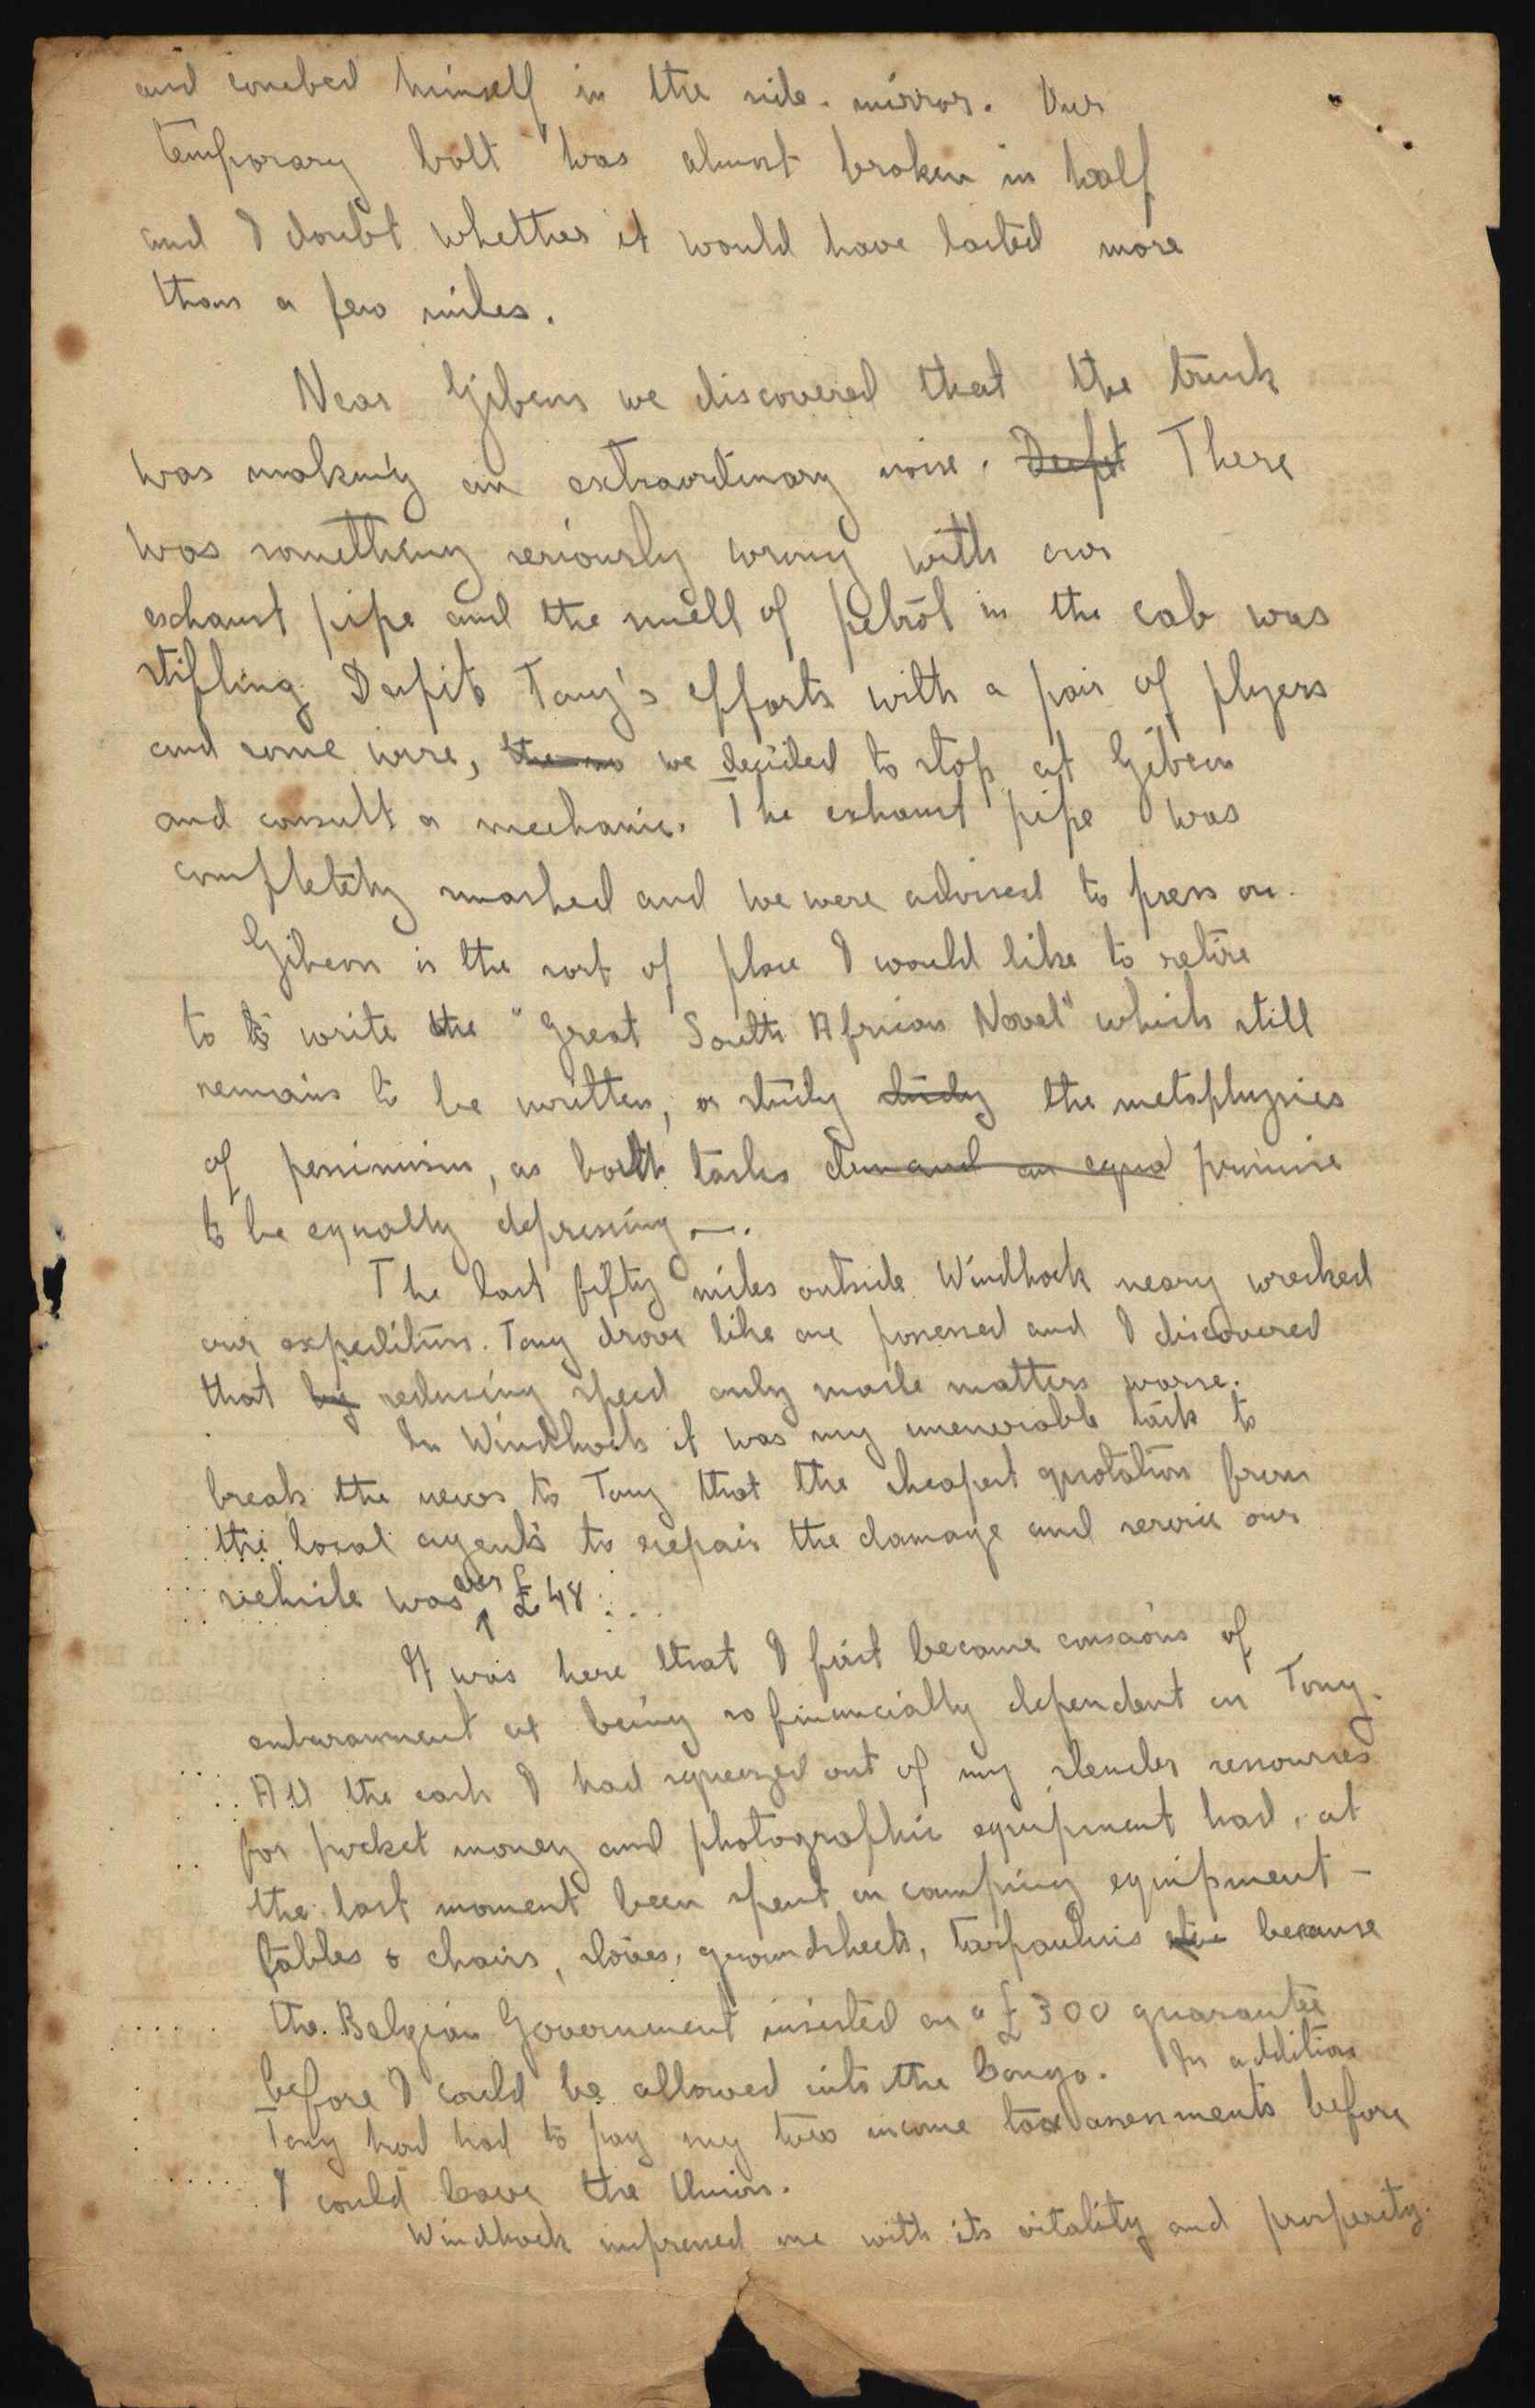 and combed himself in the side-mirror. Our
temporary bolt was almost broken in half
and I doubt whether it would have lasted more
than a few miles.
Near Gibeon we discovered that the truck
was making an extraordinary noise. Despt There
was something seriously wrong with our
exhaust pipe and the smell of petrol in the cab was
stifling. Despite Tony's efforts with a pair of plyers
and some wire, we decided to stop at Gibeon
and consult a mechanic. The exhaust pipe was
completely smashed and we were advised to press on.
Gibeon is the sort of place I would like to retire
to to write the "Great South African Novel" which still
remains to be written, or study study the metaphysics
of pessimism, as both tasks demand an equal promise
to be equally depressing —.
The last fifty miles outside Windhoek neary wrecked
our expedition. Tony drove like one possessed and I discovered
that by reducing speed only made matters worse.
In Windhoek it was my unenviable task to
break the news to Tony that the cheapest quotation from
the local agents to repair the damage and service our
vehicle was over £48
It was here that I first became conscious of
embarrasment at being so financially dependent on Tony.
All the cash I had squeezed out of my slender resources
for pocket money and photographic equipment had, at
the last moment been spent on camping equipment -
tables & chairs, stoves, groundsheets, tarpaulins because
the Belgian Government insisted on a £300 guarantee
before I could be allowed into the Congo. In addition
Tony had had to pay my two income tax assessments before
I could leave the Union.
Windhoek impressed me with its vitality and prosperity.